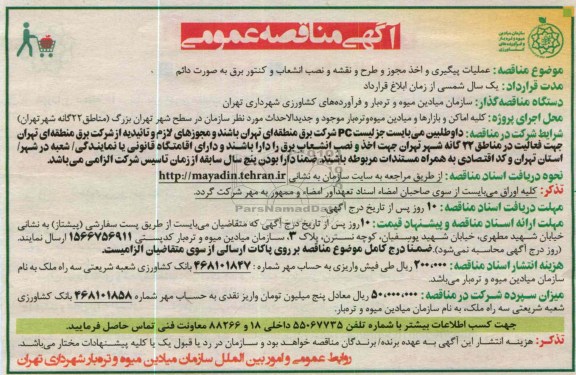 آگهی مناقصه عمومی
سازمان میادین
میوه و تره‌بار
و فرآورده‌های
کشاورزی
موضوع مناقصه: عملیات پیگیری و اخذ مجوز و طرح و نقشه و نصب انشعاب و کنتور برق به صورت دائم
مدت قرارداد: یک سال شمسی از زمان ابلاغ قرارداد
دستگاه مناقصه‌گذار: سازمان میادین میوه و تره‌بار و فرآورده‌های کشاورزی شهرداری تهران
محل اجرای پروژه: کلیه اماکن و بازارها و میادین میوه‌وتره‌بار موجود و جدیدالاحداث مورد نظر سازمان در سطح شهر تهران بزرگ (مناطق ۲۲گانه شهر تهران)
شرایط شرکت در مناقصه: داوطلبین می‌بایست جز لیست PC شرکت برق منطقه‌ای تهران باشند و مجوزهای لازم و تائیدیه از شرکت برق منطقه‌ای تهران
جهت فعالیت در مناطق ۲۲ گانه شهر تهران جهت اخذ و نصب انشعاب برق را دارا باشند و دارای اقامتگاه قانونی یا نمایندگی/ شعبه در شهر/
استان تهران و کد اقتصادی به همراه مستندات مربوطه باشند. ضمناً دارا بودن پنج سال سابقه از زمان تاسیس شرکت الزامی می‌باشد.
نحوه دریافت اسناد مناقصه: از طریق مراجعه به سایت سازمان به نشانی http://mayadin.tehran.ir
تذکر: کلیه اوراق می‌بایست از سوی صاحبان امضاء اسناد تعهدآور امضاء و ممهور به مهر شرکت گردد.
مهلت دریافت اسناد مناقصه: ۱۰ روز پس از تاریخ درج آگهی.
مهلت ارائه اسناد مناقصه و پیشنهاد قیمت: ۱۰روز پس از تاریخ درج آگهی که متقاضیان می‌بایست از طریق پست سفارشی (پیشتاز) به نشانی
خیابان شهید مطهری، خیابان شهید یوسفیان، کوچه نسترن، پلاک ۳، سازمان میادین میوه و تره‌بار کدپستی ۱۵۶۶۷۵۶۹۱۱ ارسال نمایند.
(روز درج آگهی محاسبه نمی‌شود) ضمناً درج کامل موضوع مناقصه بر روی پاکات ارسالی از سوی متقاضیان الزامیست.
هزینه انتشار اسناد مناقصه: ۲۰۰،۰۰۰ ریال طی فیش واریزی به حساب مهر شماره: ۴۶۸۱۰۱۸۴۷ بانک کشاورزی شعبه شریعتی سه راه ملک به نام
سازمان میادین میوه و تره‌بار می‌باشد.
میزان سپرده شرکت در مناقصه: ۵۰،۰۰۰،۰۰۰ ریال معادل پنج میلیون تومان واریز نقدی به حساب مهر شماره ۴۶۸۱۰۱۸۵۸ بانک کشاورزی
شعبه شریعتی سه راه ملک، به نام سازمان میادین میوه و تره‌بار.
جهت کسب اطلاعات بیشتر با شماره تلفن ۵۵۰۶۷۷۳۵ داخلی ۱۸ و ۸۸۲۶۶ معاونت فنی تماس حاصل فرمایید.
تذکر: هزینه انتشار این آگهی به عهده برنده/ برندگان مناقصه خواهد بود و سازمان در رد یا قبول یک یا کلیه پیشنهادات مختار می‌باشد.
روابط عمومی و امور بین الملل سازمان میادین میوه و تره‌بار شهرداری تهران
ParsNamadData